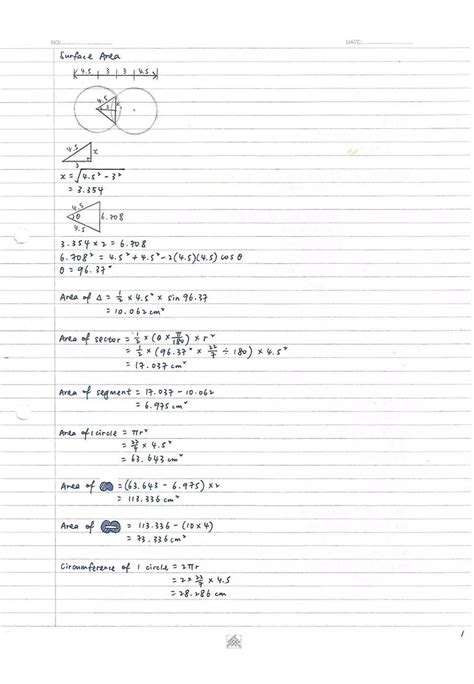 NO:
DATE:
Surface Area
4.5 3 3 4.5
4.5
3
x
4.5
x
3
x = √4.5² - 3²
= 3.354
4.5
θ
6.708
4.5
3.354 x 2 = 6.708
6.708² = 4.5² + 4.5² - 2(4.5)(4.5) cos θ
θ = 96.37°
Area of Δ = 1/2 x 4.5² x sin 96.37
= 10.062 cm²
Area of sector = 1/2 x (θ x π/180) x r²
= 1/2 x (96.37° x 22/7 ÷ 180) x 4.5²
= 17.037 cm²
Area of segment = 17.037 - 10.062
= 6.975 cm²
Area of 1 circle = πr²
= 22/7 x 4.5²
= 63.643 cm²
Area of = (63.643 - 6.975) x 2
= 113.336 cm²
Area of = 113.336 - (10 x 4)
= 73.336 cm²
Circumference of 1 circle = 2πr
= 2 x 22/7 x 4.5
= 28.286 cm
1